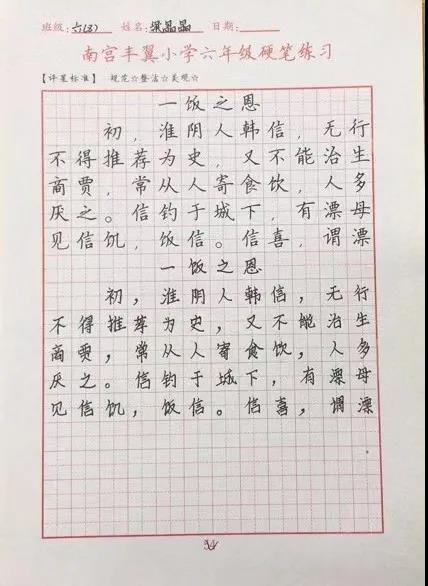 班级:六(3) 姓名:梁晶晶 日期:
南宫丰翼小学六年级硬笔练习
【评星标准】 规范☆整洁☆美观☆
一饭之恩
初,淮阴人韩信,无行
不得推荐为史,又不能治生
商贾,常从人寄食饮,人多
厌之。信钓于城下,有漂母
见信饥,饭信。信喜,谓漂
一饭之恩
初,淮阴人韩信,无行
不得推荐为史,又不能治生
商贾,常从人寄食饮,人多
厌之。信钓于城下,有漂母
见信饥,饭信。信喜,谓漂